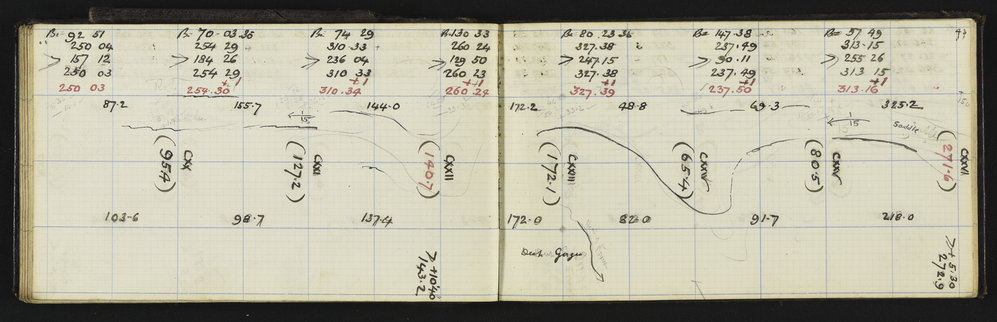 B= 92 51
250 04
157 12
250 03
250 03
B= 70-03.35
254 29
184 26
254 29
+1
254.30
B= 74 29
310.33
236 04
310 33
+1
310.34
B.130 33
260 24
129 50
260 23
+1
260 24
B= 80.23.35
327.38
247.15
327.38
+1
327.39
B= 147.38
237.49
90.11
237.49
+1
237.50
B= 57 49
313.15
255 26
313 15
+1
313.16
87.2 155.7 144.0 172.2 48.8 69.3 325.2
15 15 Saddle
CXX
(95.4)
CXXI
(127.2)
CXXII
(140.7)
CXXIII
(172.1)
CXXIV
(65.4)
CXXV
(80.5)
CXXVI
(271.6)
103.6 98.7 137.4 172.0 82.0 91.7 218.0
Gorge
143.2
272.9